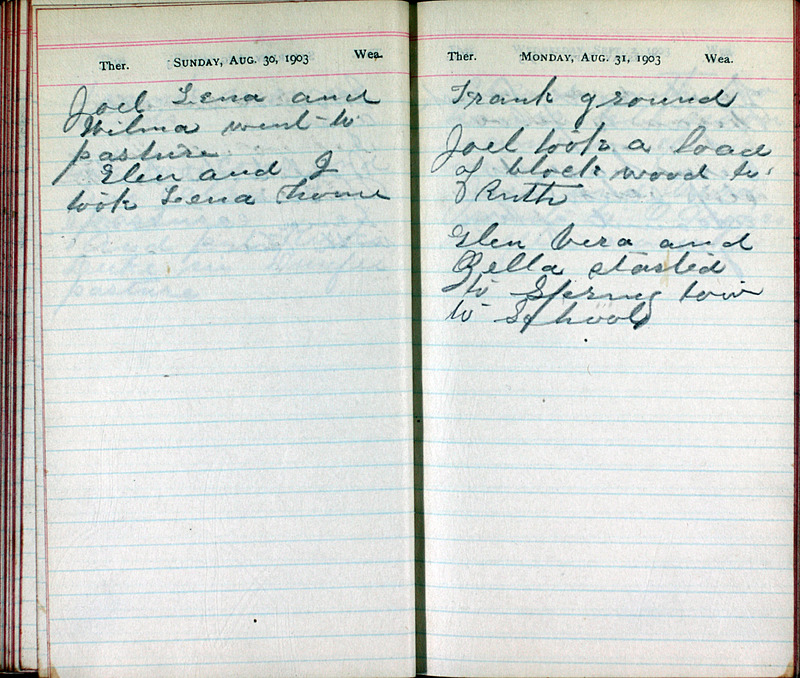 Ther. SUNDAY, AUG. 30, 1903 Wea.
Joel Lena and
Wilma went to
pasture
Glen and I
took Lena home
Ther. MONDAY, AUG. 31, 1903 Wea.
Frank ground
Joel took a load
of block wood to
Ruth
Glen Vera and
Bella started
to Spring town
to School